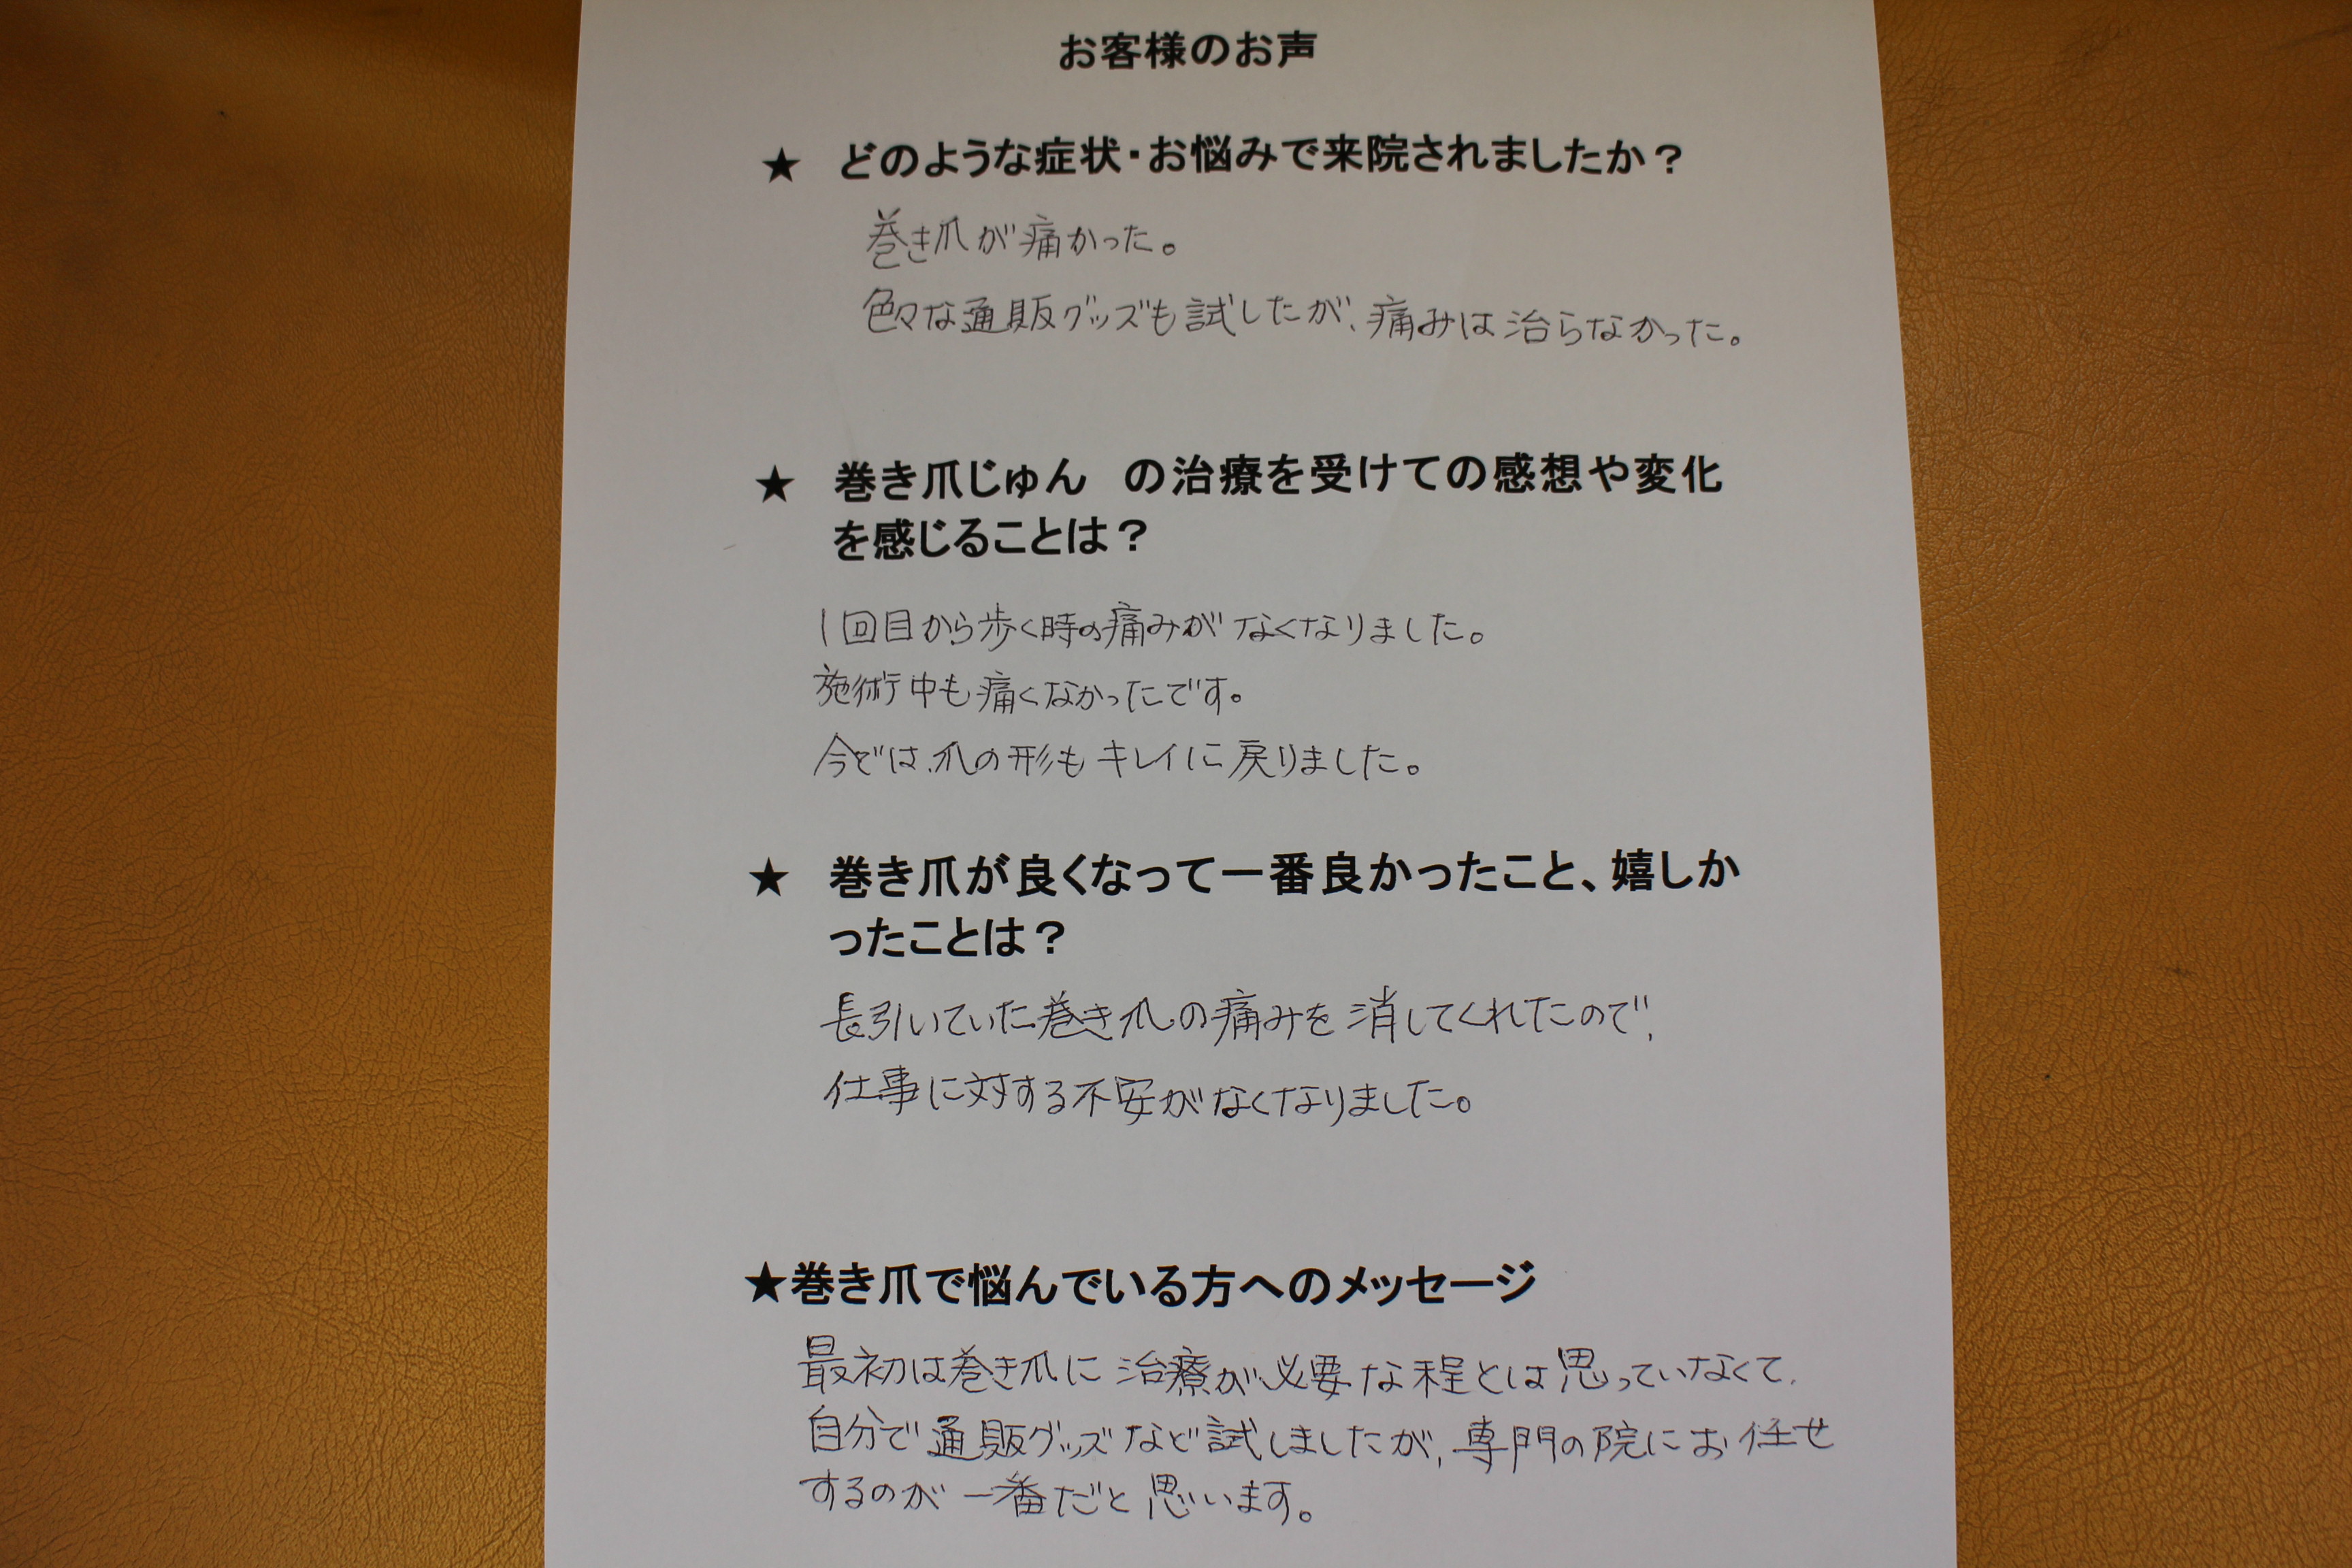 お客様のお声
★ どのような症状・お悩みで来院されましたか？
巻き爪が痛かった。
色々な通販グッズも試したが、痛みは治らなかった。
★ 巻き爪じゅん　の治療を受けての感想や変化
を感じることは？
1回目から歩く時の痛みがなくなりました。
施術中も痛くなかったです。
今では、爪の形もキレイに戻りました。
★ 巻き爪が良くなって一番良かったこと、嬉しか
ったことは？
長引いていた巻き爪の痛みを消してくれたので、
仕事に対する不安がなくなりました。
★巻き爪で悩んでいる方へのメッセージ
最初は巻き爪に治療が必要な程とは思っていなくて、
自分で通販グッズなど試しましたが、専門の院にお任せ
するのが一番だと思います。